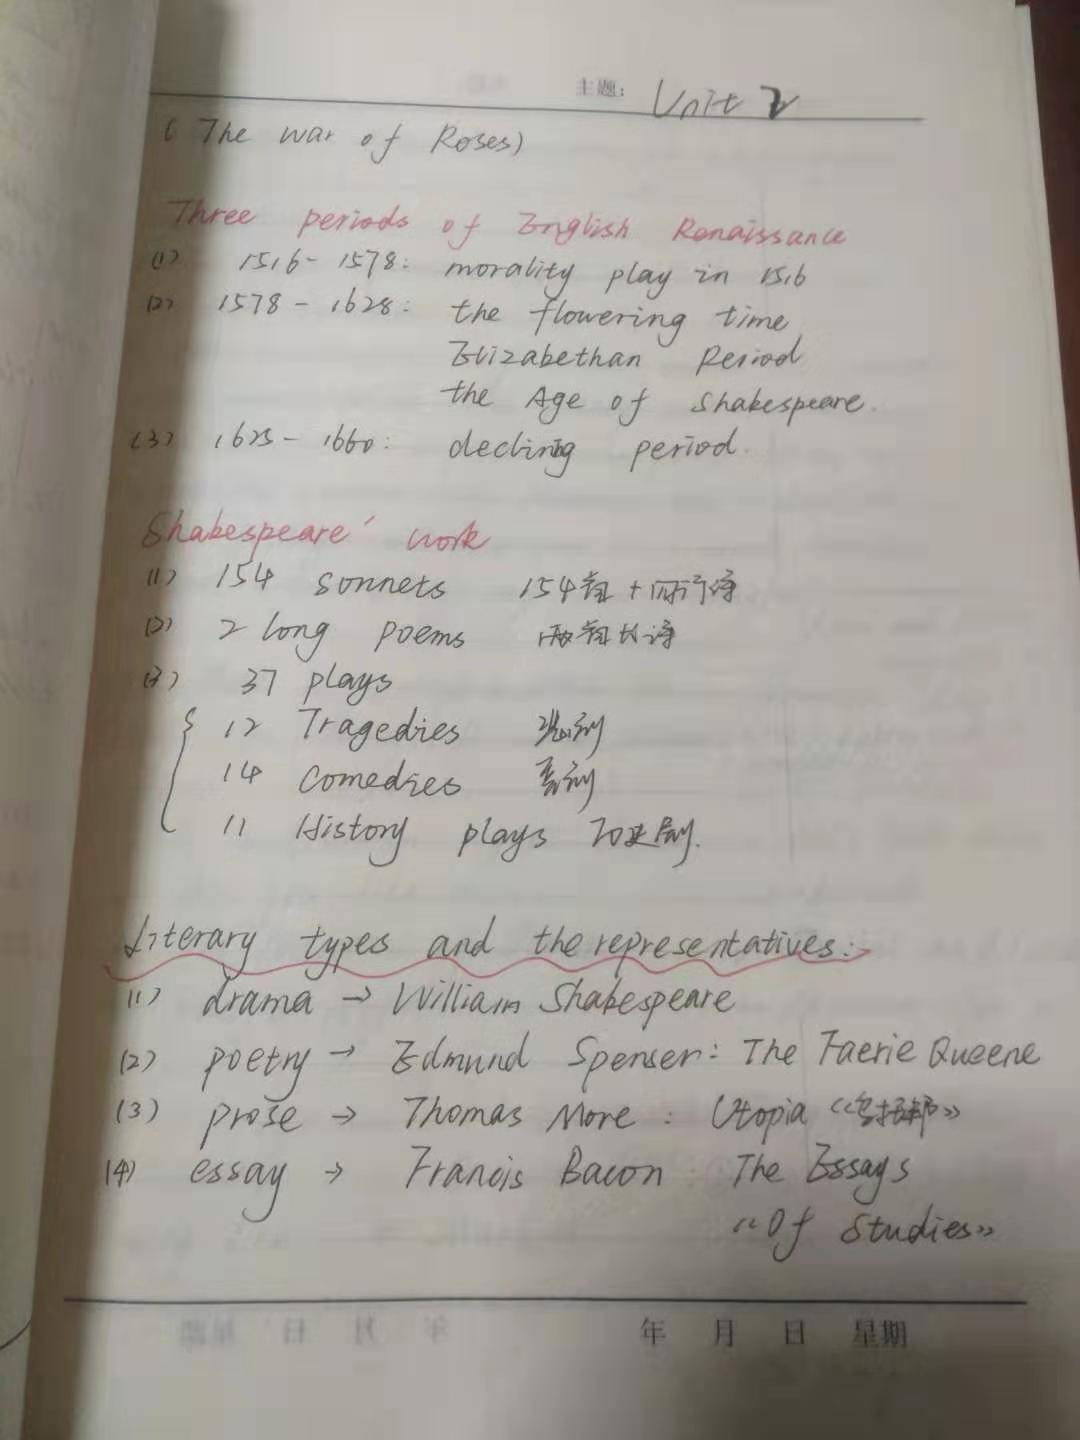 主题: Unit 2
( The war of Roses)
Three periods of English Renaissance
(1) 1516 - 1578: morality play in 1516
(2) 1578 - 1628: the flowering time
Elizabethan Period
the Age of Shakespeare.
(3) 1625 - 1660: declining period.
Shakespeare' work
(1) 154 sonnets 154首十四行诗
(2) 2 long poems 两首长诗
(3) 37 plays
12 Tragedies 悲剧
14 comedies 喜剧
11 History plays 历史剧.
Literary types and the representatives:
(1) drama → William Shakespeare
(2) poetry → Edmund Spenser: The Faerie Queene
(3) prose → Thomas More: Utopia《乌托邦》
(4) essay → Francis Bacon: The Essays
《Of Studies》
年 月 日 星期